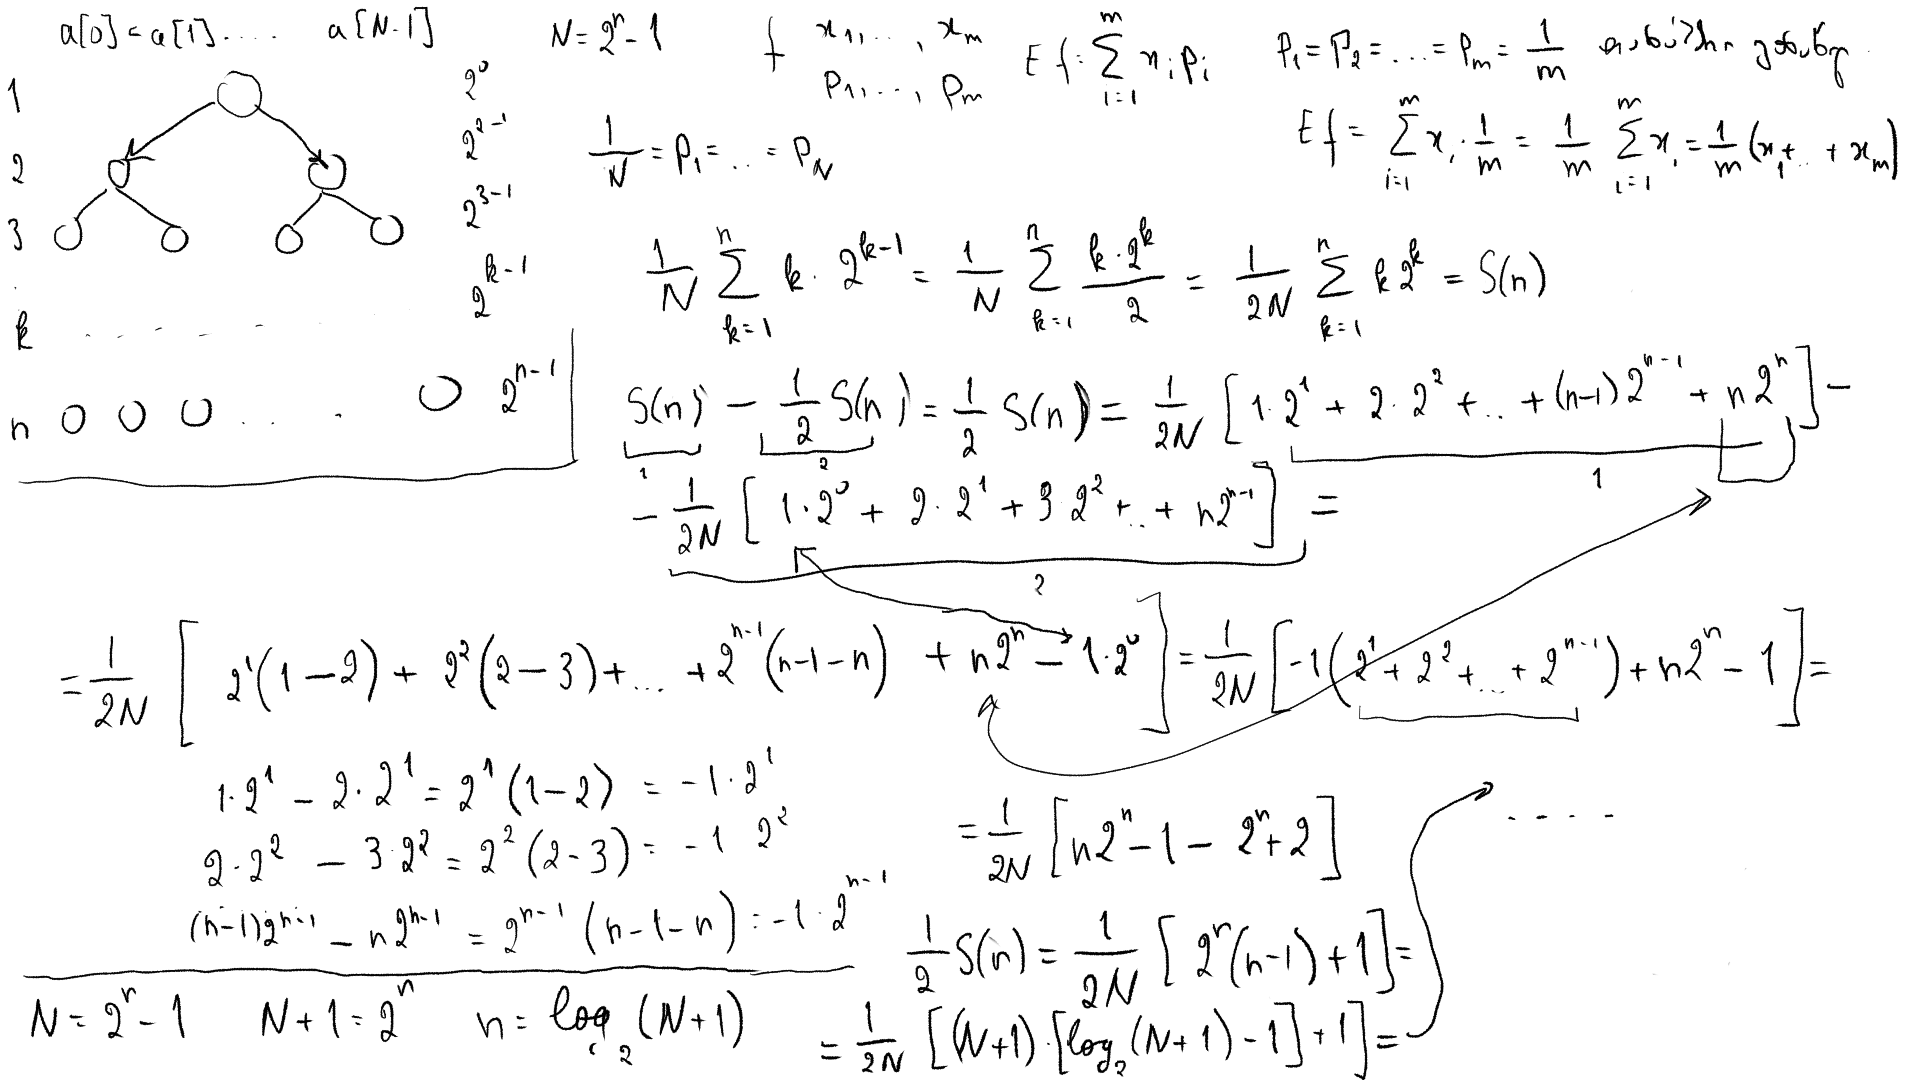 a[0]<a[1].... a[N-1]
N=2^n-1
f x_1,..., x_m
p_1,..., p_m
E f=∑_{i=1}^{m} x_i p_i
P_1=P_2=...=P_m=1/m
E f= ∑_{i=1}^{m} x_i·1/m = 1/m ∑_{i=1}^{m} x_i = 1/m (x_1+..+x_m)
1 2^0
2 2^{2-1}
3 2^{3-1}
. 2^{k-1}
k .......
n ... . 2^{n-1}
1/N = P_1=...= P_N
1/N ∑_{k=1}^{n} k·2^{k-1} = 1/N ∑_{k=1}^{n} k·2^k/2 = 1/2N ∑_{k=1}^{n} k2^k = S(n)
S(n) - 1/2 S(n) = 1/2 S(n) = 1/2N [1·2^1 + 2·2^2 +..+(n-1)2^{n-1} + n2^n] -
1 2 1
- 1/2N [1·2^0 + 2·2^1 + 3·2^2 +..+ n2^{n-1}] =
2
= 1/2N [2^1(1-2)+ 2^2(2-3)+...+2^{n-1}(n-1-n) + n2^n - 1·2^0] = 1/2N [-1(2^1+2^2+...+2^{n-1})+n2^n-1] =
1·2^1 - 2·2^1 = 2^1(1-2) = -1·2^1
2·2^2 - 3·2^2 = 2^2(2-3) = -1 2^2
(n-1)2^{n-1} - n2^{n-1} = 2^{n-1}(n-1-n) = -1·2^{n-1}
= 1/2N [n2^n-1-2^n+2]
....
1/2 S(n) = 1/2N [2^n(n-1)+1] =
N=2^n-1 N+1=2^n n=log_2(N+1)
= 1/2N [(N+1)·[log_2(N+1)-1]+1] =